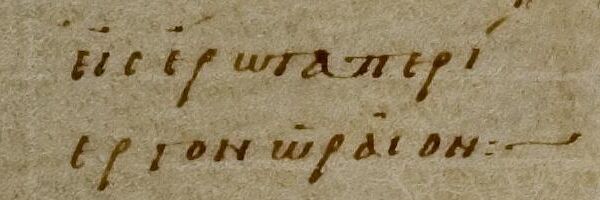 εἰς ἔρωτα περί
εργον ὡραῖον:—